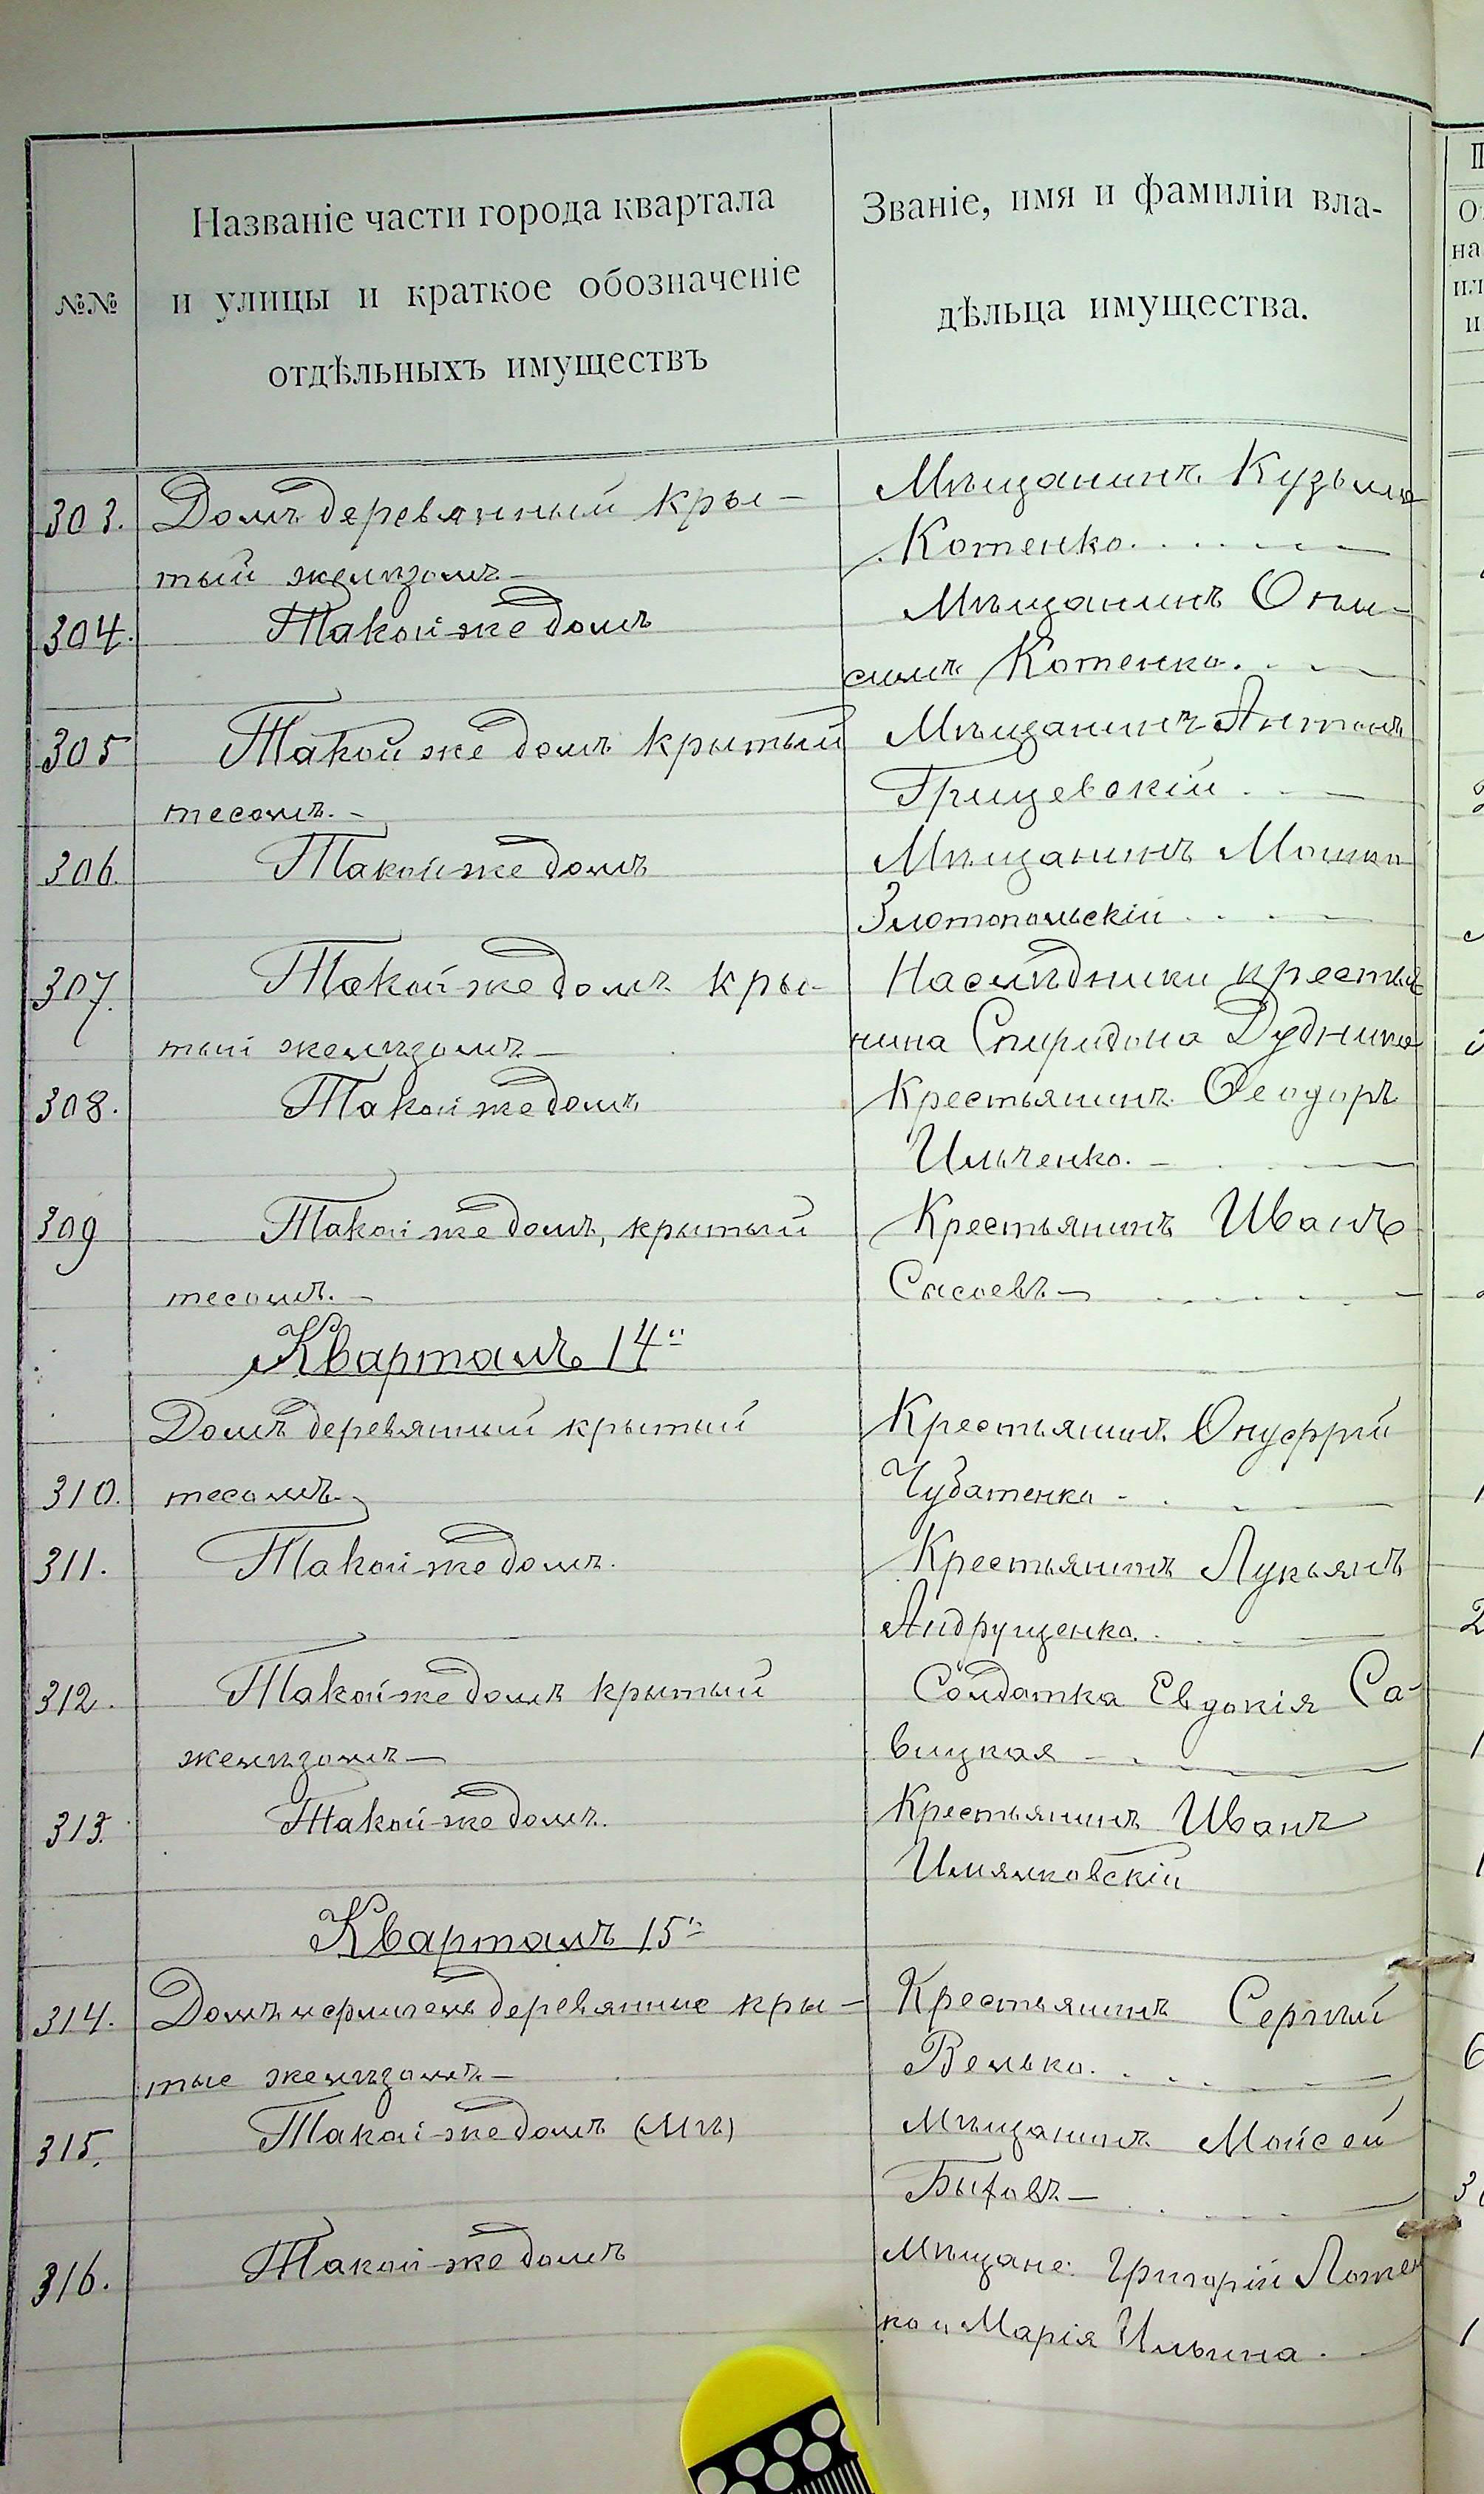 №№
Названіе части города квартала
и улицы и краткое обозначеніе
отдѣльныхъ имуществъ
Званіе, имя и фамиліи вла-
дѣльца имущества.
303. Домъ деревянный кры- Мѣщанинъ Кузьма
тый желѣзомъ Котенко
304. Такой-же домъ Мѣщанинъ Они-
симъ Котенко.
305 Такой же домъ крытый Мѣщанинъ Антонъ
тесомъ. Грищевскій
306. Такой же домъ Мѣщанинъ Мошко
Злотопольскій
307. Такой-же домъ кры- Наслѣдники крестья
тый желѣзомъ нина Спиридона Дудника
308. Такой же домъ Крестьянинъ Ѳеодоръ
Ильченко.
309 Такой же домъ, крытый Крестьянинъ Иванъ
тесомъ. Сысоевъ
Кварталъ 14й
Домъ деревянный крытый Крестьянинъ Онуфрій
310. тесомъ. Чубатенко
311. Такой-же домъ. Крестьянинъ Лукьянъ
Андрущенко.
312. Такой-же домъ крытый Солдатка Евдокія Са-
желѣзомъ вицкая
313. Такой-же домъ. Крестьянинъ Иванъ
Кварталъ 15й
314. Домъ и флигель деревянные кры- Крестьянинъ Сергѣй
тые желѣзомъ Велько.
315. Такой-же домъ Мѣщанинъ Мойсей
Быховъ
316. Такой-же домъ Мѣщане: Григорій Лотен
ко и Марія Ильина.